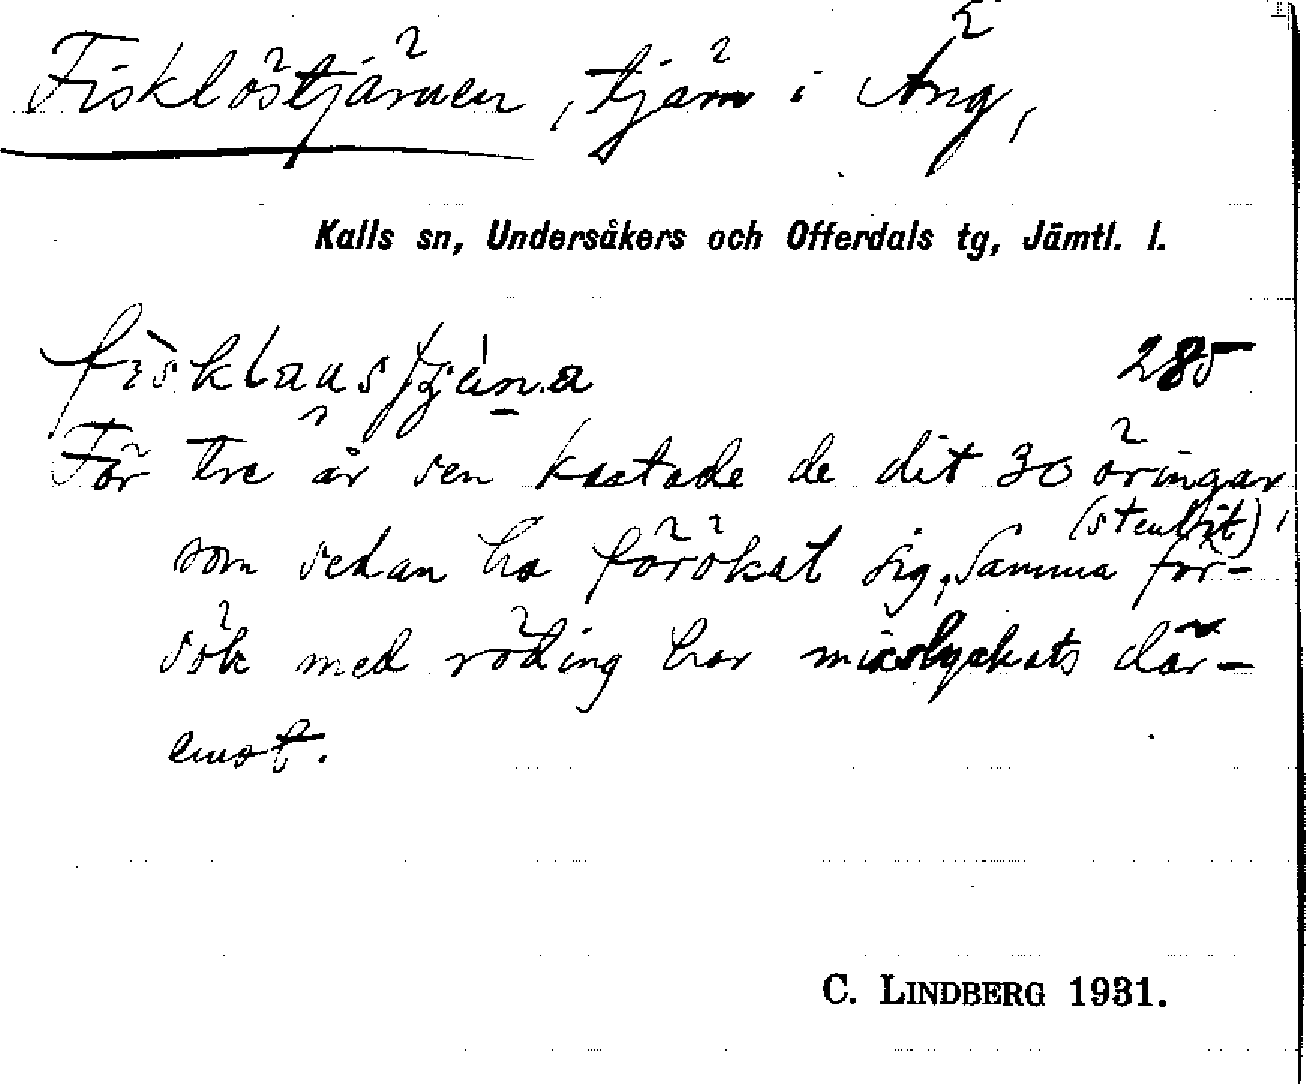 Fisklöstjärnen, tjärn i Äng,
Kalls sn, Undersåkers och Offerdals tg, Jämtl. l.
285
För tre år sen kastade de dit 30 öringar
(stenbit),
som sedan ha förökat sig. Samma för-
sök med röding har misslyckats där-
emot.
C. LINDBERG 1931.